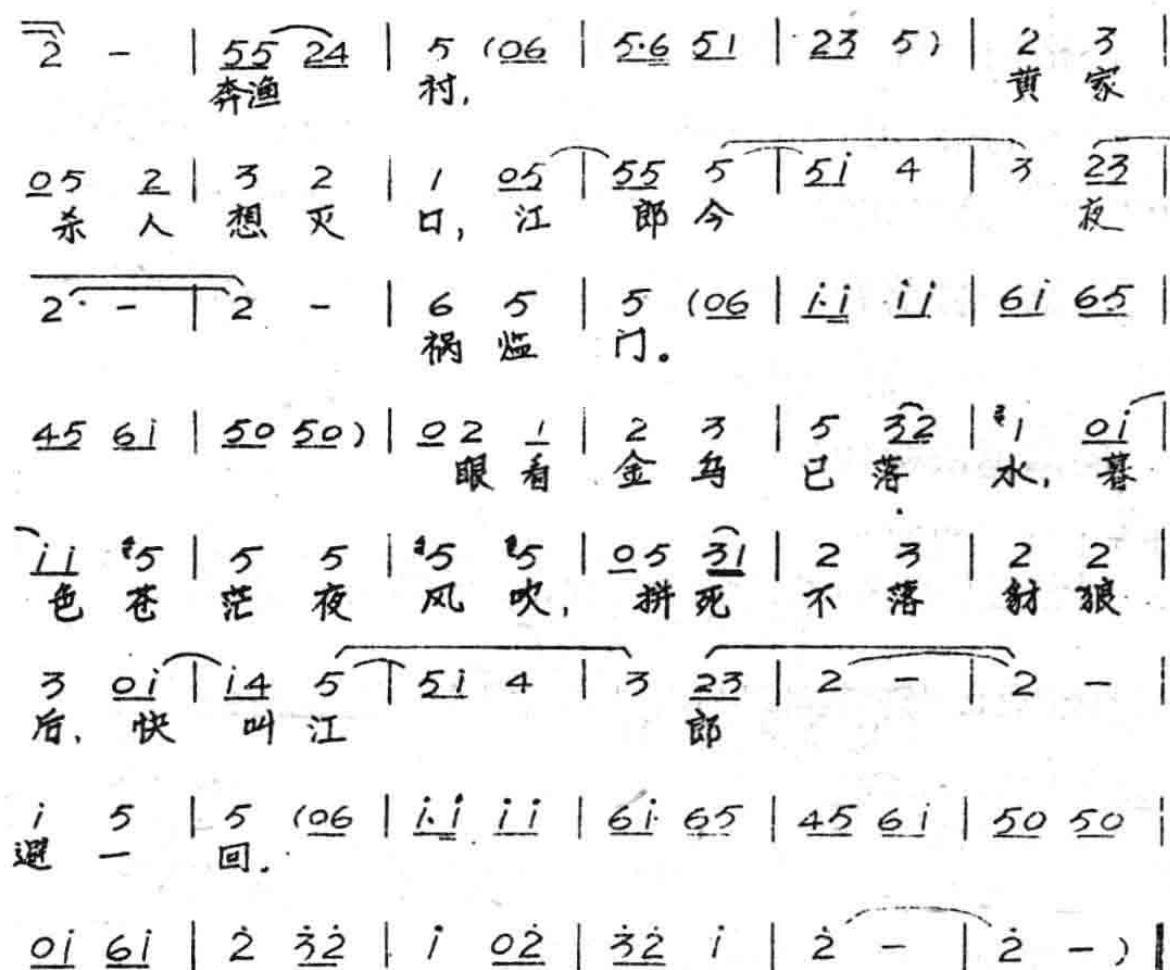 2 - | 55 24 | 5 (06 | 5·6 51 | 23 5) | 2 3 |
奔渔 村, 黄 家
05 2 | 3 2 | 1 05 | 55 5 | 51̇ 4 | 3 23 |
杀 人 想 灭 口, 江 郎 今 夜
2· - | 2 - | 6 5 | 5 (06 | 1̇·1̇ 1̇1̇ | 61̇ 65 |
祸 临 门。
45 61̇ | 50 50) | 02 1 | 2 3 | 5 32 | 1 01̇ |
眼 看 金 乌 已 落 水, 暮
1̇1̇ 5 | 5 5 | 5 5 | 05 31 | 2 3 | 2 2 |
色 苍 茫 夜 风 吹, 拼 死 不 落 豺 狼
3 01̇ | 1̇4 5 | 51̇ 4 | 3 23 | 2 - | 2 - |
后, 快 叫 江 郎
1̇ 5 | 5 (06 | 1̇·1̇ 1̇1̇ | 61̇· 65 | 45 61̇ | 50 50 |
避 一 回.
01̇ 61̇ | 2̇ 3̇2̇ | 1̇ 02̇ | 3̇2̇ 1̇ | 2̇ - | 2̇ -) ‖